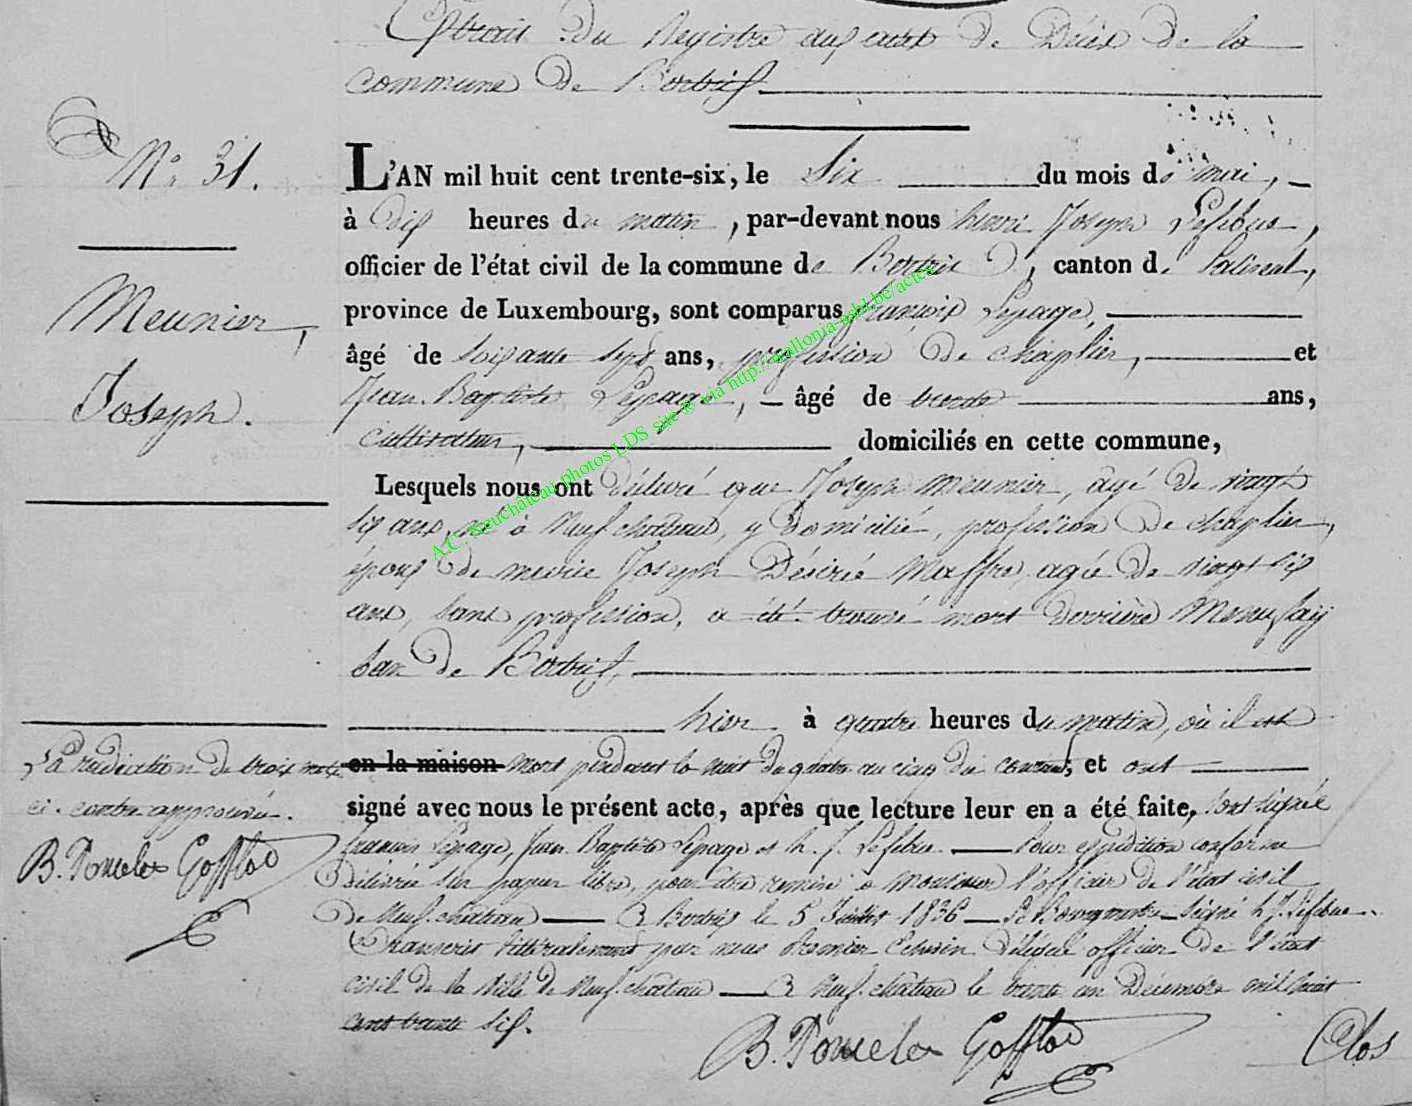 Extrait du Registre aux actes de Décès de la
commune de Bodrif
N° 31.
L'AN mil huit cent trente-six, le Six du mois de mai,
à dix heures du matin, par-devant nous henri Joseph Lefebve,
officier de l'état civil de la commune de, canton de,
Meunier,
province de Luxembourg, sont comparus françois Lepage,
âgé de soixante sept ans, profession de chaplier, et
Joseph.
Jean Baptiste Lepage, âgé de trente ans,
cultivateur, domiciliés en cette commune,
Lesquels nous ont déclaré que Joseph Meunier, âgé de vingt
six ans, né à Neufchateau, y domicilié, profession de chaplier,
époux de marie Joseph Désirée Maffre, agée de vingt six
ans, sans profession, a été trouvé mort derrière
ban de
hier à quatre heures du matin, où il est
La radiation de trois mots
en la maison mort pendant la nuit du quatre au cinq du courant, et ont
ci-contre approuvée.
signé avec nous le présent acte, après que lecture leur en a été faite, sont signé
françois Lepage, Jean Baptiste Lepage et h. J. Lefebve. Pour expédition conforme
B. Poncelet Goffloc
délivrée sur papier libre, pour être remise à Monsieur l'officier de l'état civil
de Neufchateau A le 5 Juillet 1836 signé h. J. Lefebve.
Transcrit littéralement par nous Premier Echevin délégué officier de l'état
civil de la Ville de Neufchateau A Neufchateau le trente un Décembre mil huit
cent trente six.
B. Poncelet Goffloc
Clos
A.C. Neuchâteau photos LDS site © via http://wallonia-asbl.be/actes